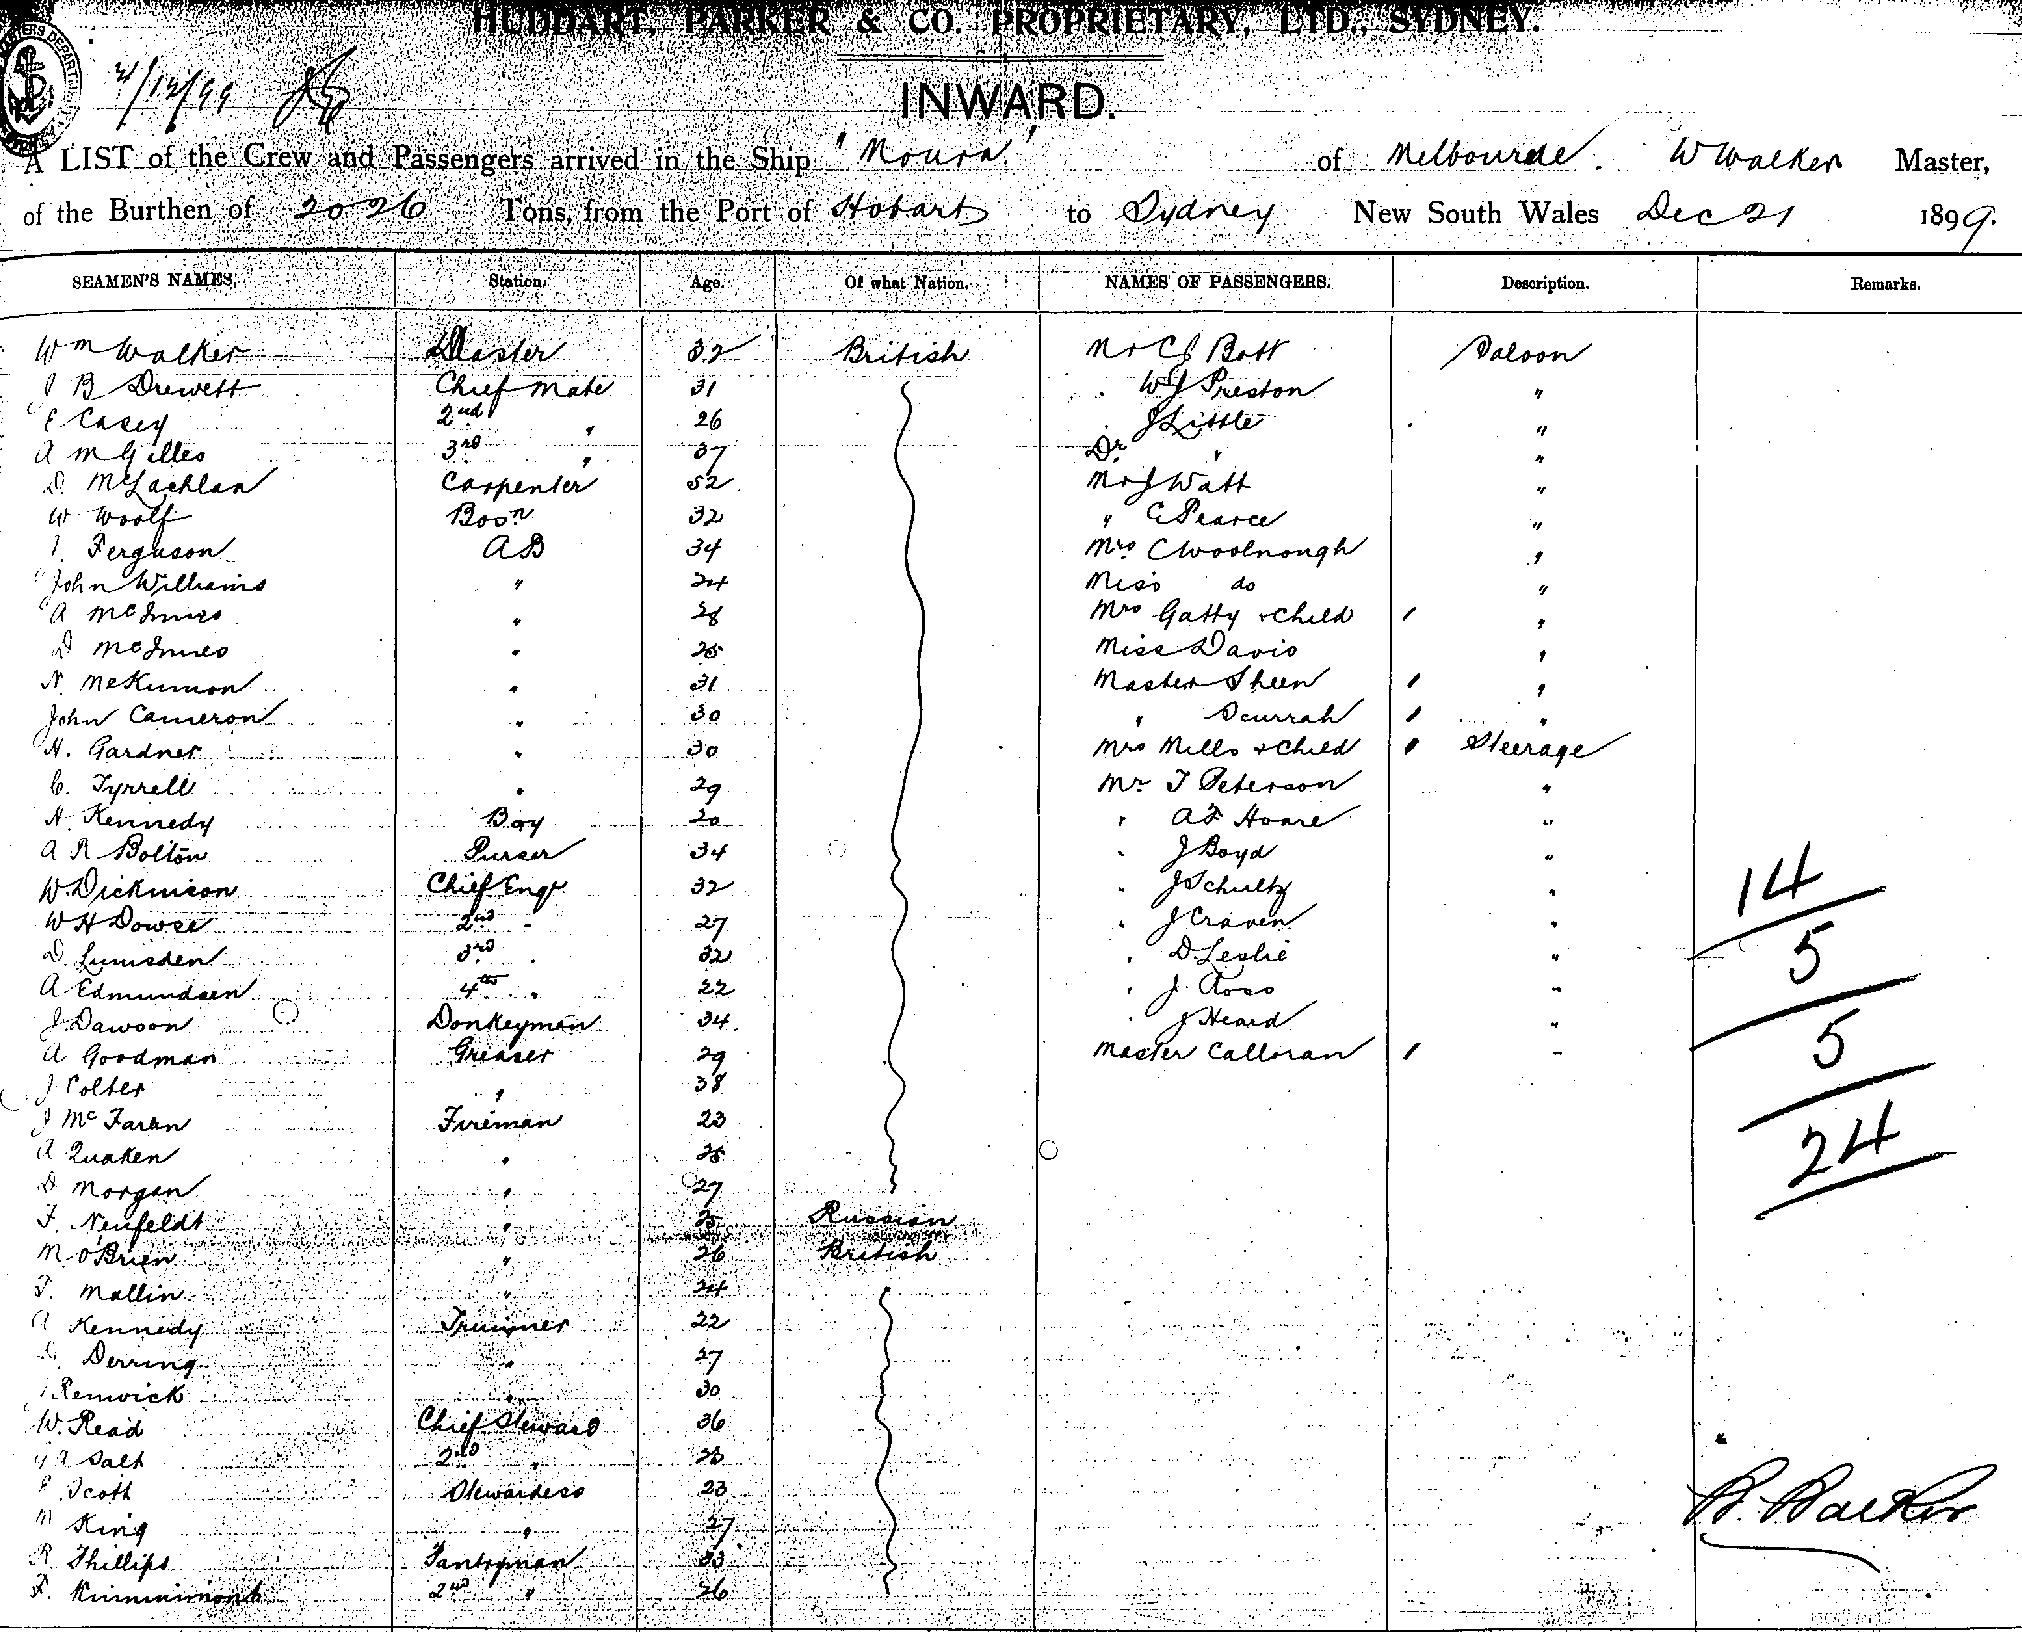 HUDDART, PARKER & CO. PROPRIETARY, LTD., SYDNEY.
21/12/99
INWARD.
A LIST of the Crew and Passengers arrived in the Ship "Moura" of Melbourne. W Walker Master,
of the Burthen of 2026 Tons, from the Port of Hobart to Sydney New South Wales Dec 21 1899.
SEAMEN'S NAMES. Station. Age. Of what Nation. NAMES OF PASSENGERS. Description. Remarks.
Wm Walker Master 32 British Mr C J Bott Saloon
J B Drewett Chief Mate 31 W J Preston "
E Casey 2nd " 26 J Little "
A McGilles 3rd " 37 Dr " "
D. McLachlan Carpenter 52 Mr J Watt "
W Woolf Bosn 32 " C Pearce "
J. Ferguson AB 34 Mrs C Woolnough "
John Williams " 24 Miss do "
A McInnes " 28 Mrs Gatty & Child / "
D McInnes " 25 Miss Davis "
N. McKinnon " 31 Master Sheen / "
John Cameron " 30 " Scurrah / "
H. Gardner " 30 Mrs Mills & Child / Steerage
C. Tyrrell " 29 Mr T Peterson "
H. Kennedy Boy 20 " A F Hoare "
A R Bolton Purser 34 " J Boyd "
W. Dickinson Chief Engr 32 " J Schultz " 14
W H Dowse 2nd " 27 " J Craven "
D. Lumsden 3rd " 32 " D. Leslie " 5
A Edmundsen 4th " 22 " J. Ross "
J. Dawson Donkeyman 34 " J Heard " 5
A Goodman Greaser 29 Master Calloran / "
J Colter " 38
J McFaran Fireman 23 24
A Quaken " 25
D Morgan " 27
F. Neufeldt " 25 Russian
M O'Brien " 26 British
T. Mallin " 24
A Kennedy Trimmer 22
Derring " 27
Renwick " 30
W. Read Chief Steward 36
A Salt 2nd " 23
E Scott Stewardess 23 B. Barker
M King " 27
R. Phillips Pantryman 33
F. Kinninmonth 2nd " 26